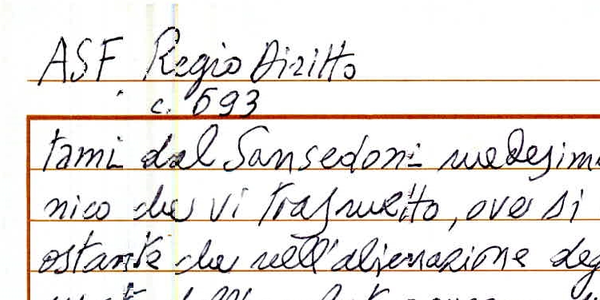 ASF Regio Diritto
c. 693
tami dal Sansedoni medesim
nico che vi trasmetto, ove si
ostante che nell'alienazione deg